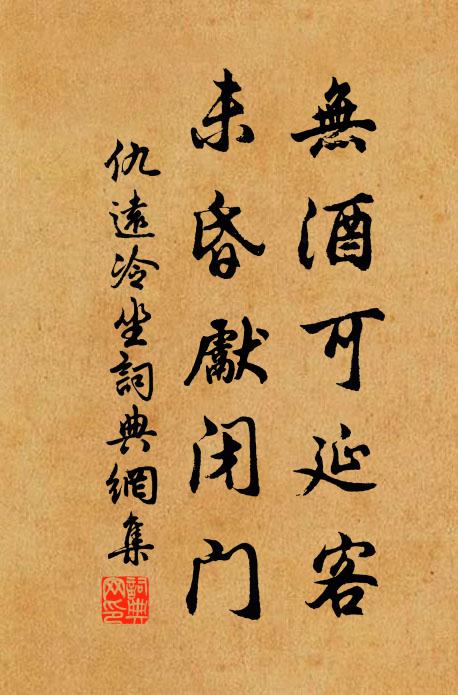 無酒可延客
未昏獻閉門
仇遠冷坐詞典網集
詞典网印